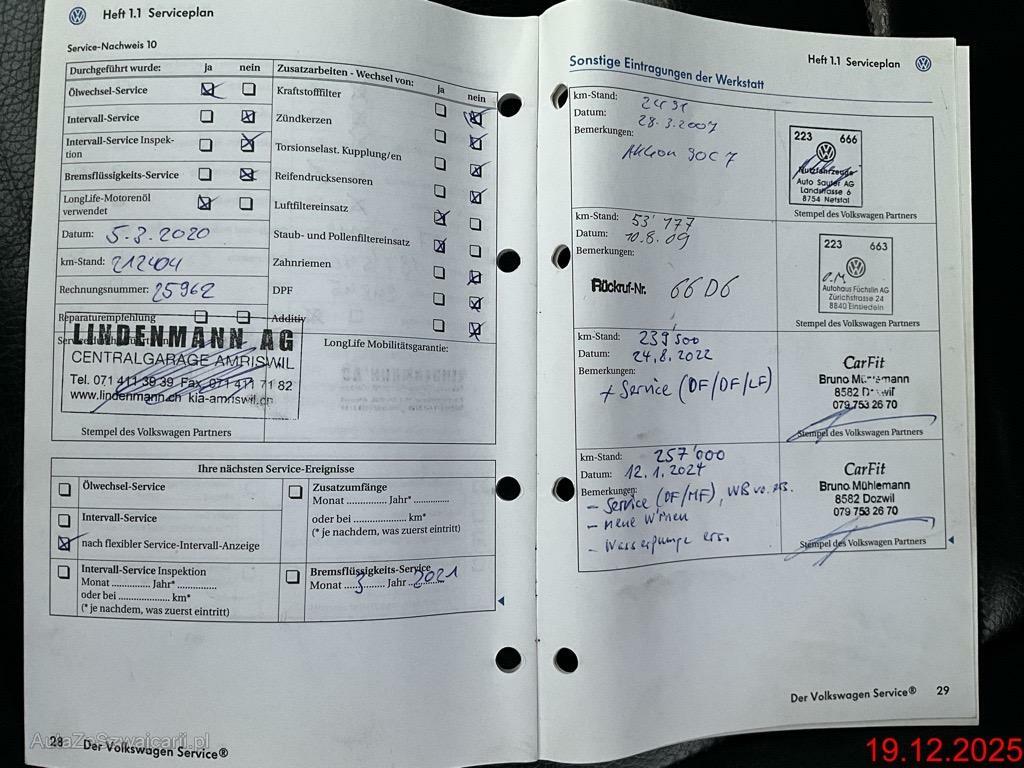 Heft 1.1 Serviceplan
Service-Nachweis 10
Durchgeführt wurde: ja nein
Ölwechsel-Service
Intervall-Service
Intervall-Service Inspek-
tion
Bremsflüssigkeits-Service
LongLife-Motorenöl
verwendet
Datum: 5.3.2020
km-Stand: 212404
Rechnungsnummer: 25962
Reparaturempfehlung
LINDENMANN AG
CENTRALGARAGE AMRISWIL
Tel. 071 411 39 39 Fax 071 411 71 82
www.lindenmann.ch kia-amriswil.ch
Stempel des Volkswagen Partners
Zusatzarbeiten - Wechsel von: ja nein
Kraftstofffilter
Zündkerzen
Torsionselast. Kupplung/en
Reifendrucksensoren
Luftfiltereinsatz
Staub- und Pollenfiltereinsatz
Zahnriemen
DPF
Additiv
LongLife Mobilitätsgarantie:
Ihre nächsten Service-Ereignisse
Ölwechsel-Service
Intervall-Service
nach flexibler Service-Intervall-Anzeige
Intervall-Service Inspektion
Monat ............ Jahr* ................
oder bei ..................... km*
(* je nachdem, was zuerst eintritt)
Zusatzumfänge
Monat ............ Jahr* ..............
oder bei ..................... km*
(* je nachdem, was zuerst eintritt)
Bremsflüssigkeits-Service
Monat ....3...... Jahr ..2021
28 Der Volkswagen Service®
AutaZeSzwajcarii.pl
Heft 1.1 Serviceplan
Sonstige Eintragungen der Werkstatt
km-Stand: 2431
Datum: 28.3.2007
Bemerkungen:
Aktion 90C7
223 666
Nutzfahrzeuge
Auto Sauter AG
Landstrasse 6
8754 Netstal
Stempel des Volkswagen Partners
km-Stand: 53'177
Datum: 10.8.09
Bemerkungen:
Rückruf-Nr. 66D6
223 663
Autohaus Füchslin AG
Zürichstrasse 24
8840 Einsiedeln
Stempel des Volkswagen Partners
km-Stand: 239500
Datum: 24.8.2022
Bemerkungen:
+ Service (ÖF/DF/LF)
CarFit
Bruno Mühlemann
8582 Dozwil
079 753 26 70
Stempel des Volkswagen Partners
km-Stand: 257'000
Datum: 12.1.2024
Bemerkungen:
- Service (ÖF/MF), WB vo.
- neue
- Wasserpumpe ers.
CarFit
Bruno Mühlemann
8582 Dozwil
079 753 26 70
Stempel des Volkswagen Partners
Der Volkswagen Service® 29
19.12.2025